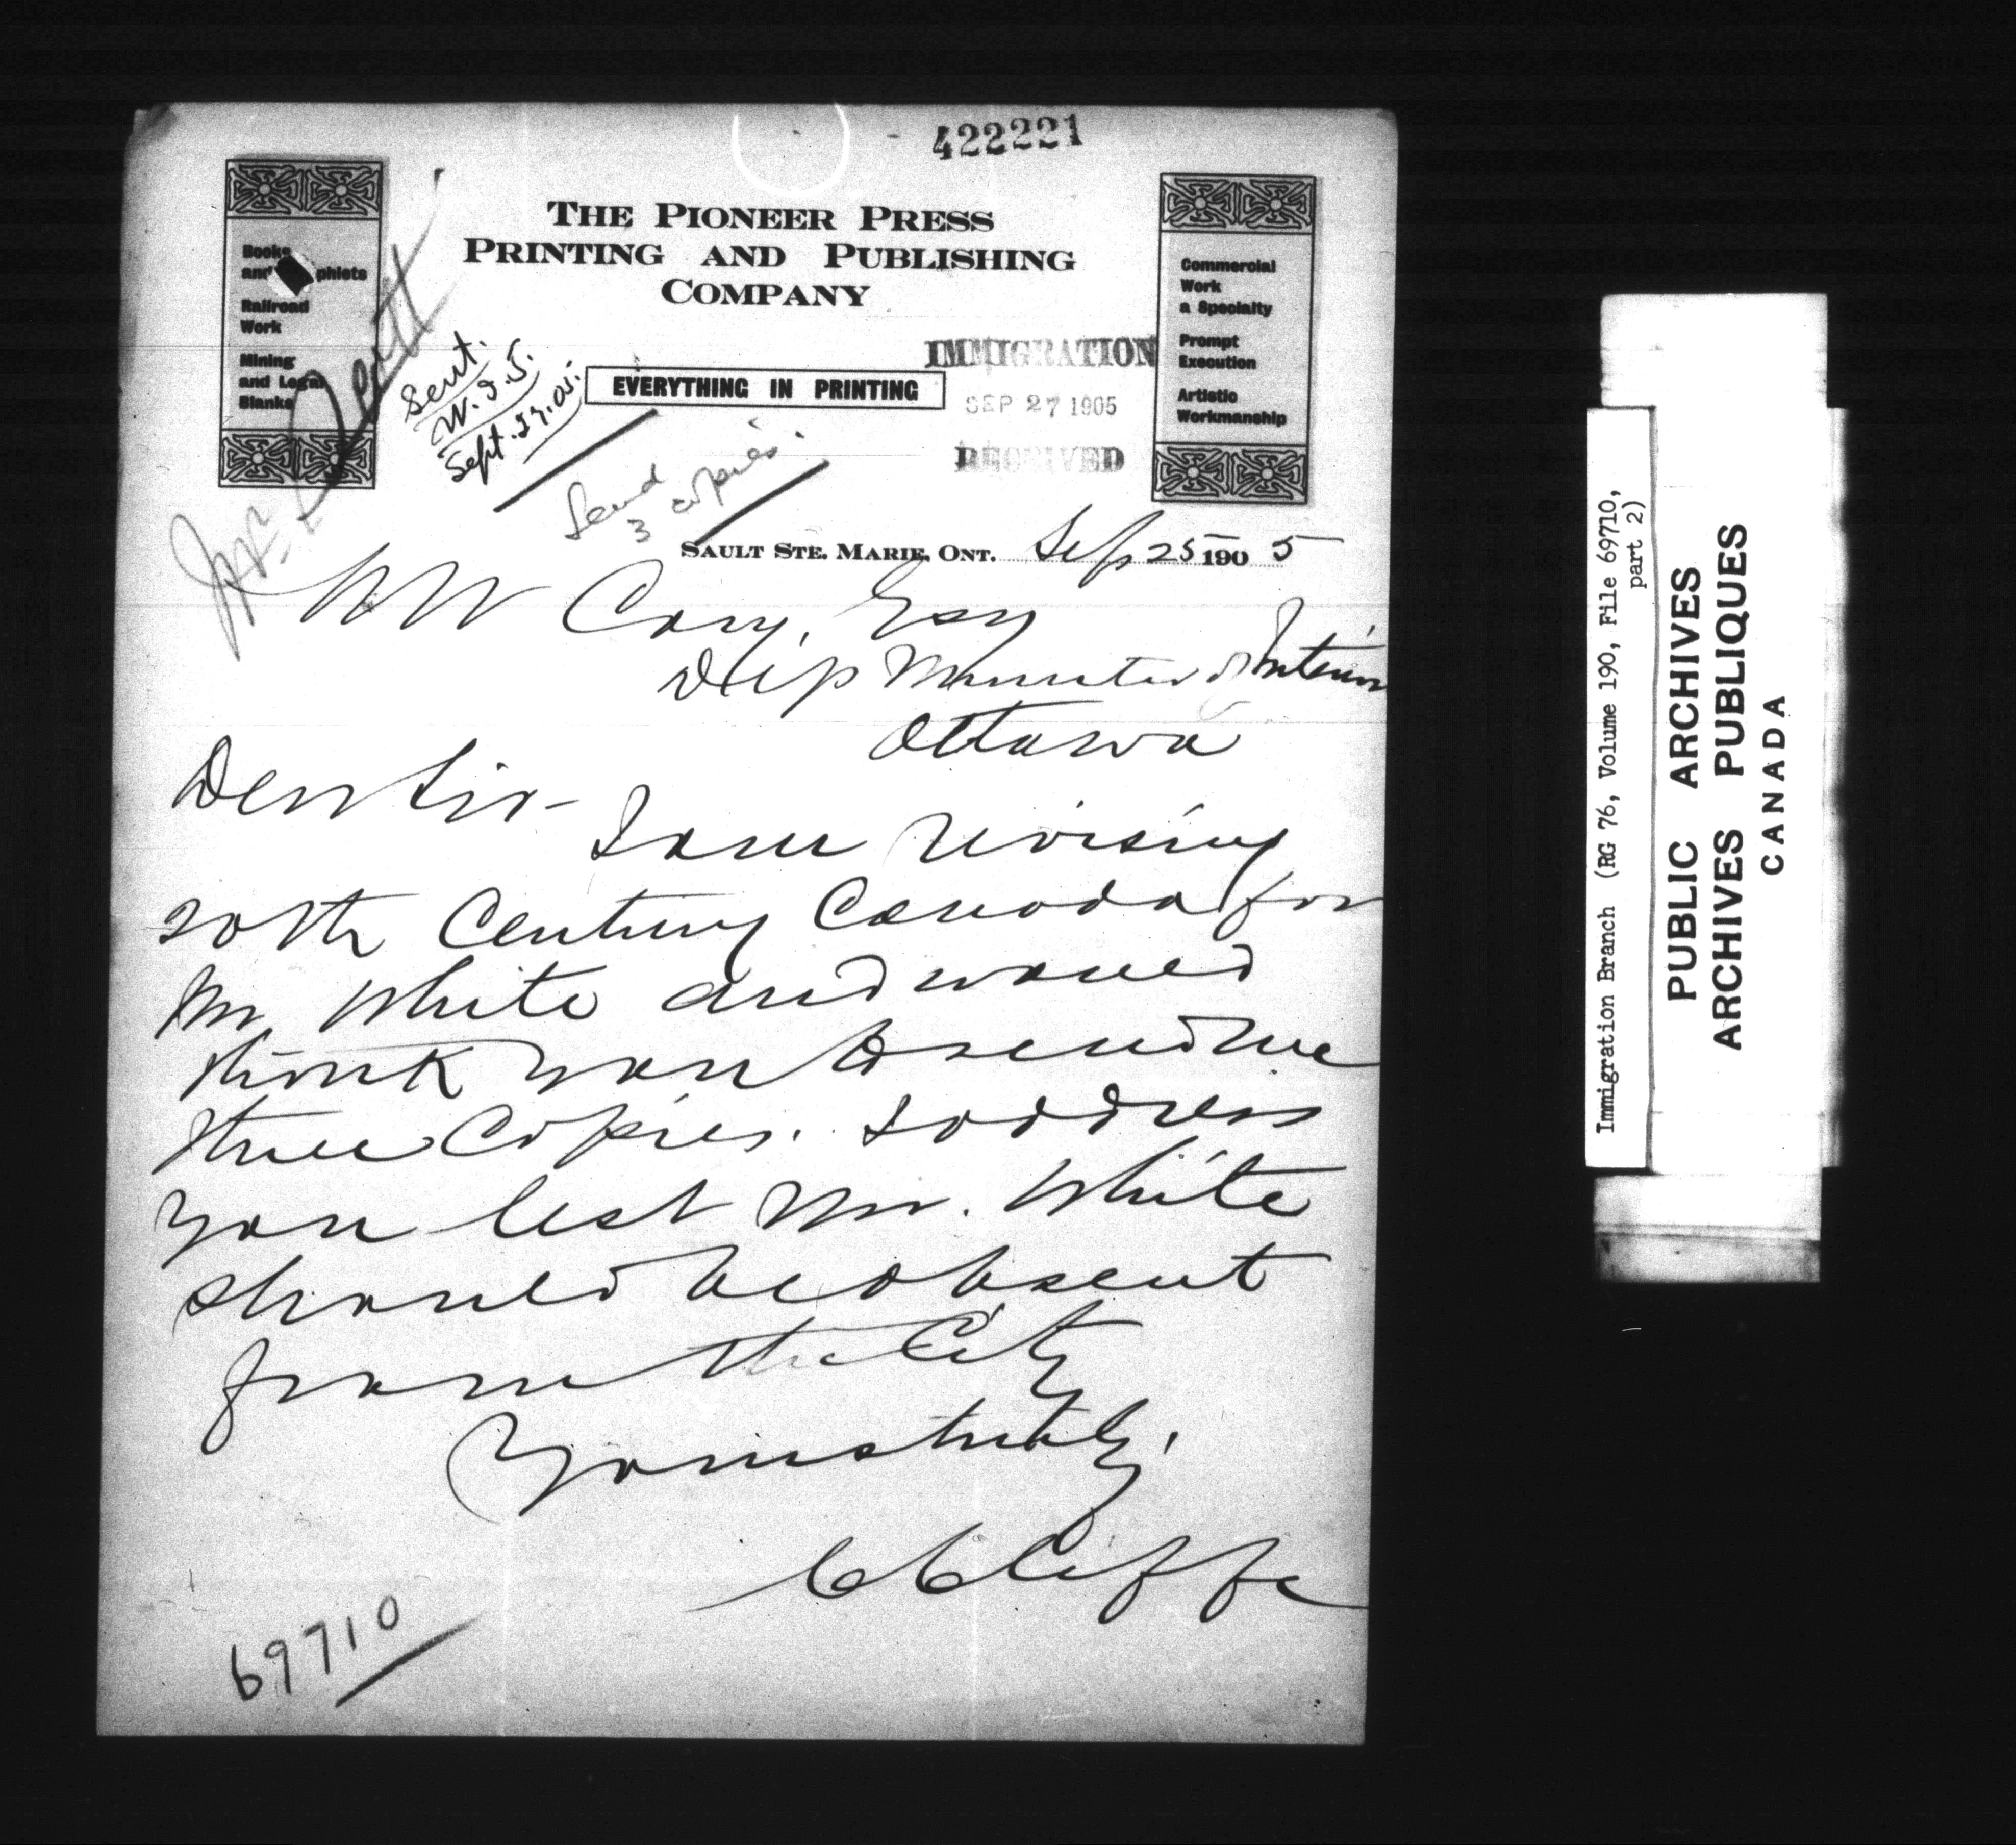 422221
THE PIONEER PRESS
PRINTING AND PUBLISHING
COMPANY
Books
and phlets
Railroad
Work
Mining
and Legal
Blanks
Commercial
Work
a Specialty
Prompt
Execution
Artistic
Workmanship
EVERYTHING IN PRINTING
IMMIGRATION
SEP 27 1905
RECEIVED
Mr.
Sent.
Sept. 27.05.
Send
3 copies.
SAULT STE. MARIE, ONT. Sep 25 1905
W W Cory, Esq
Dep Minister of Interior
Ottawa
Dear Sir-
I am revising
20th Century Canada for
Mr White and would
thank you to send me
three copies. I address
you lest Mr. White
should be absent
from the City
Yours truly,
C Cliffe
69710
Immigration Branch (RG 76, Volume 190, File 69710,
part 2)
PUBLIC ARCHIVES
ARCHIVES PUBLIQUES
CANADA